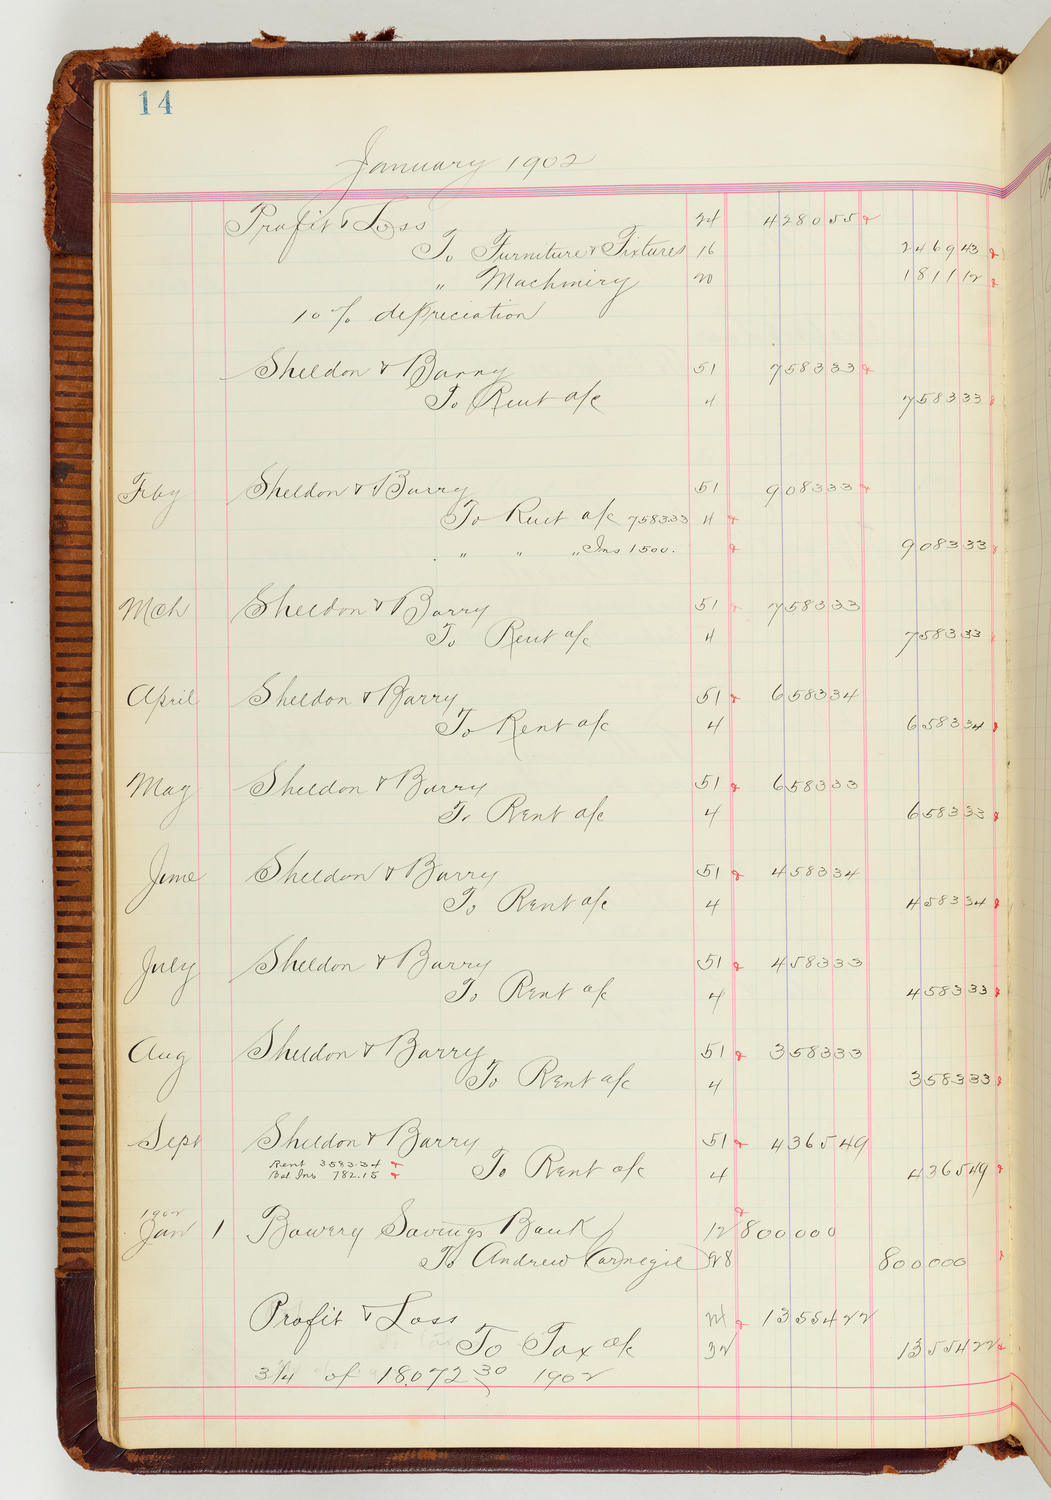 14
January 1902
Profit & Loss 24 428055
To Furniture & Fixtures 16 246943
" Machinery 20 181112
10% depreciation
Sheldon & Barry 51 758333
To Rent a/c 4 758333
Feby Sheldon & Barry 51 908333
To Rent a/c 7583.33 4
" " " Ins 1500. 908333
Mch Sheldon & Barry 51 758333
To Rent a/c 4 758333
April Sheldon & Barry 51 658334
To Rent a/c 4 658334
May Sheldon & Barry 51 658333
To Rent a/c 4 658333
June Sheldon & Barry 51 458334
To Rent a/c 4 458334
July Sheldon & Barry 51 458333
To Rent a/c 4 458333
Aug Sheldon & Barry 51 358333
To Rent a/c 4 358333
Sept Sheldon & Barry 51 436549
Rent 3583.34 To Rent a/c 4 436549
Bal Ins 782.15
1902
Jan 1 Bowery Savings Bank 12 800000
To Andrew Carnegie 28 800000
Profit & Loss 24 1355422
To Tax a/c 32 1355422
3/4 of 18.072 30 1902